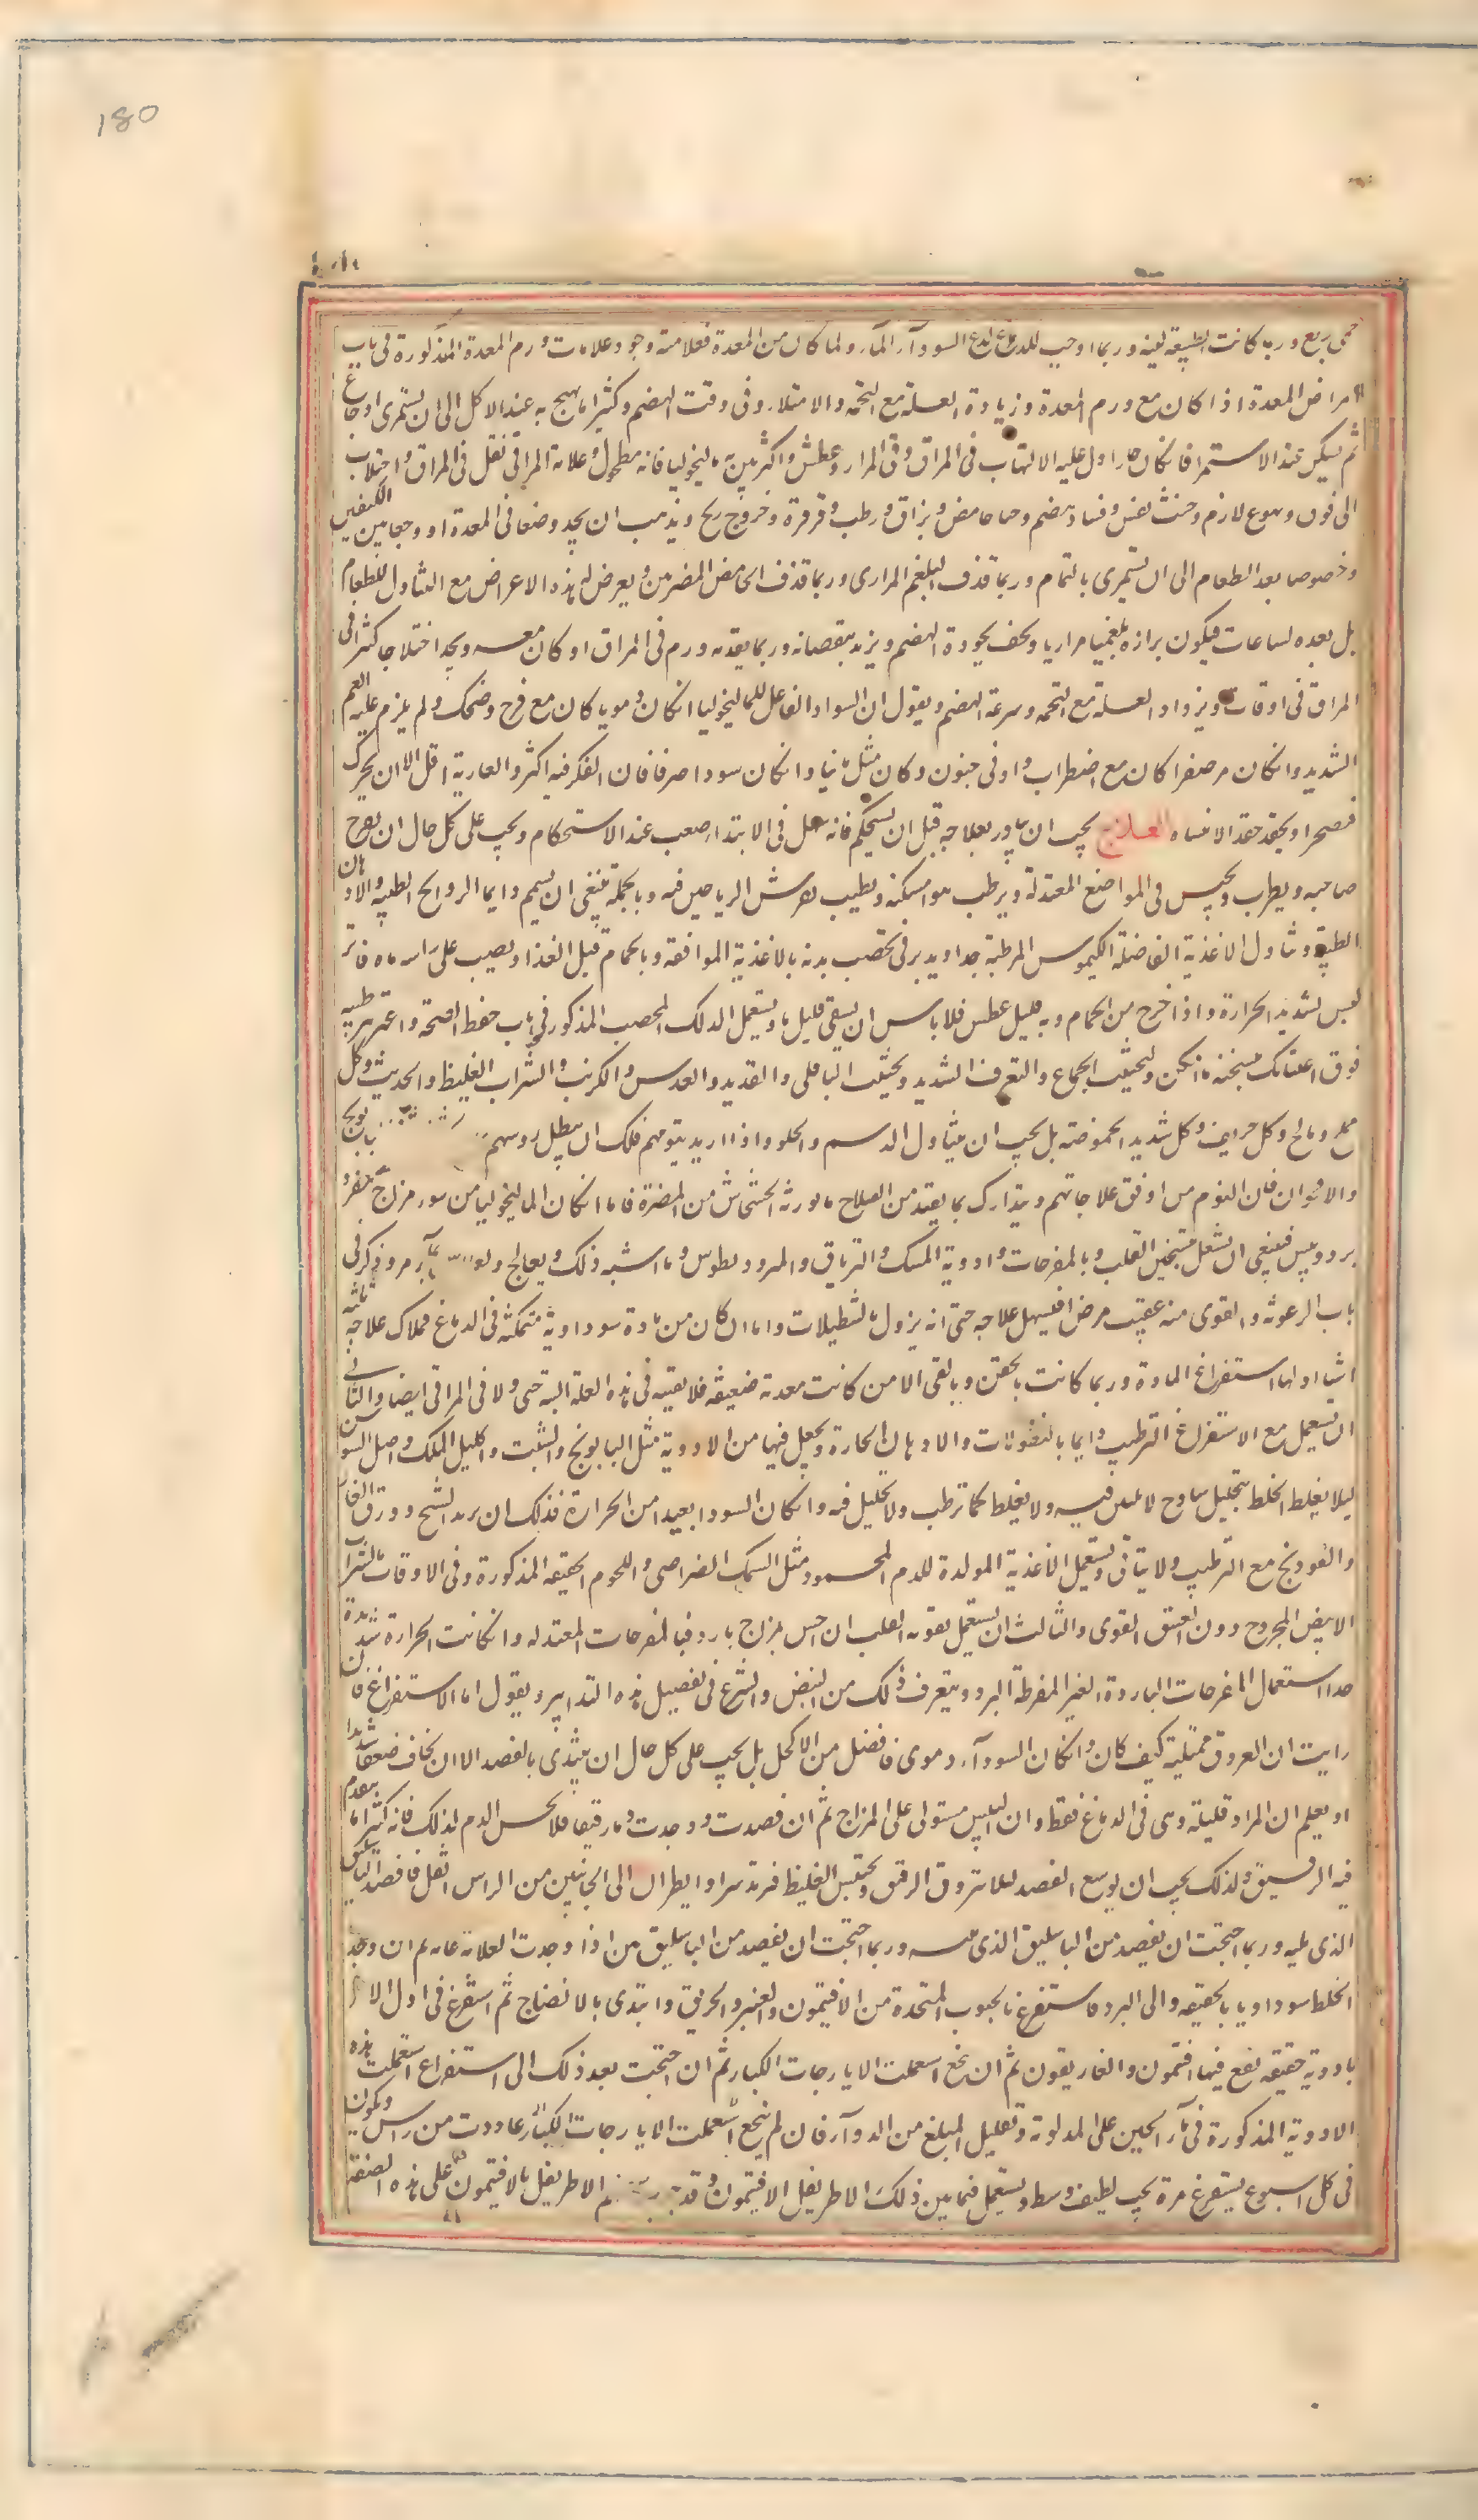 180
حمى ربع وربما كانت الطبيعة لينة وربما اوجب للدوغ السوداء الماء ولما كان من المعدة فعلامته وجود علامات ورم المعدة المذكورة فى باب
امراض المعدة اذا كان مع ورم المعدة وزيادة العلة مع التخمة والامتلاء وفى وقت الهضم وكثيرا ما يهيج به عند الاكل الى ان يستمرى اوجاع
ثم يسكن عند الاستمرا فان كان حارا دل عليه الالتهاب فى المراق وقى المرار وعطش واكثر من به ماليخوليا فانه مطحول وعلامة المراقى ثقل فى المراق واختلاب
الى فوق وتهوع لازم وخبث نفس وفساد هضم وجشا حامض وبزاق رطب وقرقرة وخروج ريح وتذهب ان يجد وضعا فى المعدة او وجعا بين الكتفين
وخصوصا بعد الطعام الى ان يستمرى بالتمام وربما قذف البلغم المرارى وربما قذف الحامض المضرس ويعرض له هذه الاعراض مع التناول للطعام
بل بعده لساعات فيكون برازه بلغميا مراريا ويخف بجودة الهضم ويزيد بنقصانه وربما يقدمه ورم فى المراق او كان معه ويجد اختلاجا كثيرا فى
المراق فى اوقات ويزداد العلة مع التخمة وسرعة الهضم ويقول ان السوادا الفاعل للماليخوليا ان كان دمويا كان مع فرح وضحك ولم يلزم عليه الغم
الشديد وان كان مر صفرا كان مع اضطراب وادنى جنون وكان مثل مانيا وان كان سودا صرفا فان الفكر فيه اكثر والعارية اقل الا ان يحرك
فيضجرا ويحقد حقدا لا ينساه العلاج يجب ان يبادر بعلاجه قبل ان يستحكم فانه سهل فى الابتداء صعب عند الاستحكام ويجب على كل حال ان يفرح
صاحبه ويطرب ويجلس فى المواضع المعتدلة ويرطب هوا مسكنه ويطيب بفرش الرياحين فيه وبالجملة ينبغى ان يشم دايما الروايح الطيبة والادهان
الطيبة وتناول الاغذية الفاضلة الكيموس المرطبة جدا ويدبر فى تخصيب بدنه بالاغذية الموافقة وبالحمام قبل الغذا ويصب على راسه ماء فاتر
ليس بشديد الحرارة واذا خرج من الحمام وبه قليل عطش فلا باس ان يسقى قليل ماء ويستعمل الدلك المخصب المذكور فى باب حفظ الصحة واعتن بترطيبه
فوق اعتنائك بتسخينه ما امكن وليجتنب الجماع والتعرق الشديد ويجتنب الباقلى والقديد والعدس والكرنب والشراب الغليظ والحديث وكل
مملح ومالح وكل حريف وكل شديد الحموضة بل يجب ان يتناول الدسم والحلو واذا اريد تنويمهم فلك ان تنطل روسهم
والاقحوان فان النوم من اوفق علاجاتهم ويتدارك بما يقتد من الصلاح ما يورثه الخشخاش من المضرة فاما ان كان الماليخوليا من سوء مزاج مفرد
برد ويبس فينبغى ان يشتغل بتسخين القلب وبالمفرحات وادوية المسك والترياق والمثروديطوس وما اشبه ذلك ويعالج
باب الرعونة والقوى منه عقيب مرض اخر فيسهل علاجه حتى انه يزول بالتنطيلات واما ان كان من مادة سوداوية متمكنة فى الدماغ فملاك علاجه ثلثة
اشيا اولها استفراغ المادة وربما كانت بالحقن وبالقى الا من كانت معدته ضعيفة فلا يقيه فى هذه العلة البتة حتى ولا فى المراقى ايضا والثانى
ان يستعمل مع الاستفراغ الترطيب دايما بالنطولات والادهان الحارة ويجعل فيها من الادوية مثل البابونج والشبت واكليل الملك واصل السوسن
ليلا يغلظ الخلط بتحليل ساذج لا تليين فيه ولا يغلظ كما ترطب ولا تحليل فيه وان كان السودا بعيدا من الحرارة فذلك ان يزيد الشيح وورق الغار
والفودنج مع الترطيب ولا يتاق ويستعمل الاغذية المولدة للدم المحمود مثل السمك الرضراضى واللحوم الخفيفة المذكورة وفى الاوقات بالشراب
الابيض الممزوج دون العتيق القوى والثالث ان يستعمل تقوية القلب ان احس بمزاج بارد فبالمفرحات المعتدلة وان كانت الحرارة شديدة
جدا استعمال المفرحات الباردة الغير المفرطة البرد ويتعرف ذلك من النبض ولنشرع فى تفصيل هذه التدابير ويقول اما الاستفراغ فان
رايت ان العروق ممتلية كيف كان وان كان السوداء دموى فافصد من الاكحل بل يجب على كل حال ان يبتدى بالفصد الا ان يخاف ضعفا شديدا
او يعلم ان المواد قليلة وهى فى الدماغ فقط وان اليبس مستولى على المزاج ثم ان فصدت ووجدت دما رقيقا فلا يحبس الدم لذلك فانه كثيرا ما يتقدم
فيه الرقيق ولذلك يجب ان يوسع الفصد لئلا يتروق الرقيق ويحتبس الغليظ فيزيد شرا وانظر ان اى الجانبين من الراس اثقل فافصد الباسليق
الذى يليه وربما احتجت ان يفصد من الباسليق الذى وربما احتجت ان يفصد من الباسليق من اذا وجدت العلامة عامة ثم ان وجد
الخلط سوداويا بالحقيقة والى البرد فاستفرغ بالحبوب المتخذة من الافتيمون والصبر والخربق وابتدى بالانضاج ثم استفرغ فى اول الامر
بادوية خفيفة يقع فيها افتيمون والغاريقون ثم ان نجع استعملت الايارجات الكبار ثم ان احتجت بعد ذلك الى استفراغ استعملت هذه
الادوية المذكورة فى ماء الجبن على المداومة وتقليل المبلغ من الدواء فان لم ينجع استعملت الايارجات الكبار عاودت من راس ويكون
فى كل اسبوع يستفرغ مرة بحب لطيف وسط ويستعمل فيما بين ذلك الاطريفل الافتيمونى وقد الاطريفل بالافتيمون على هذه الصفة